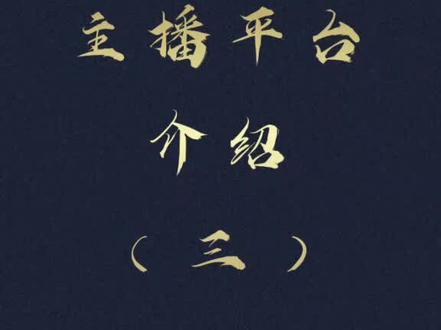 主播平台
介绍
（三）